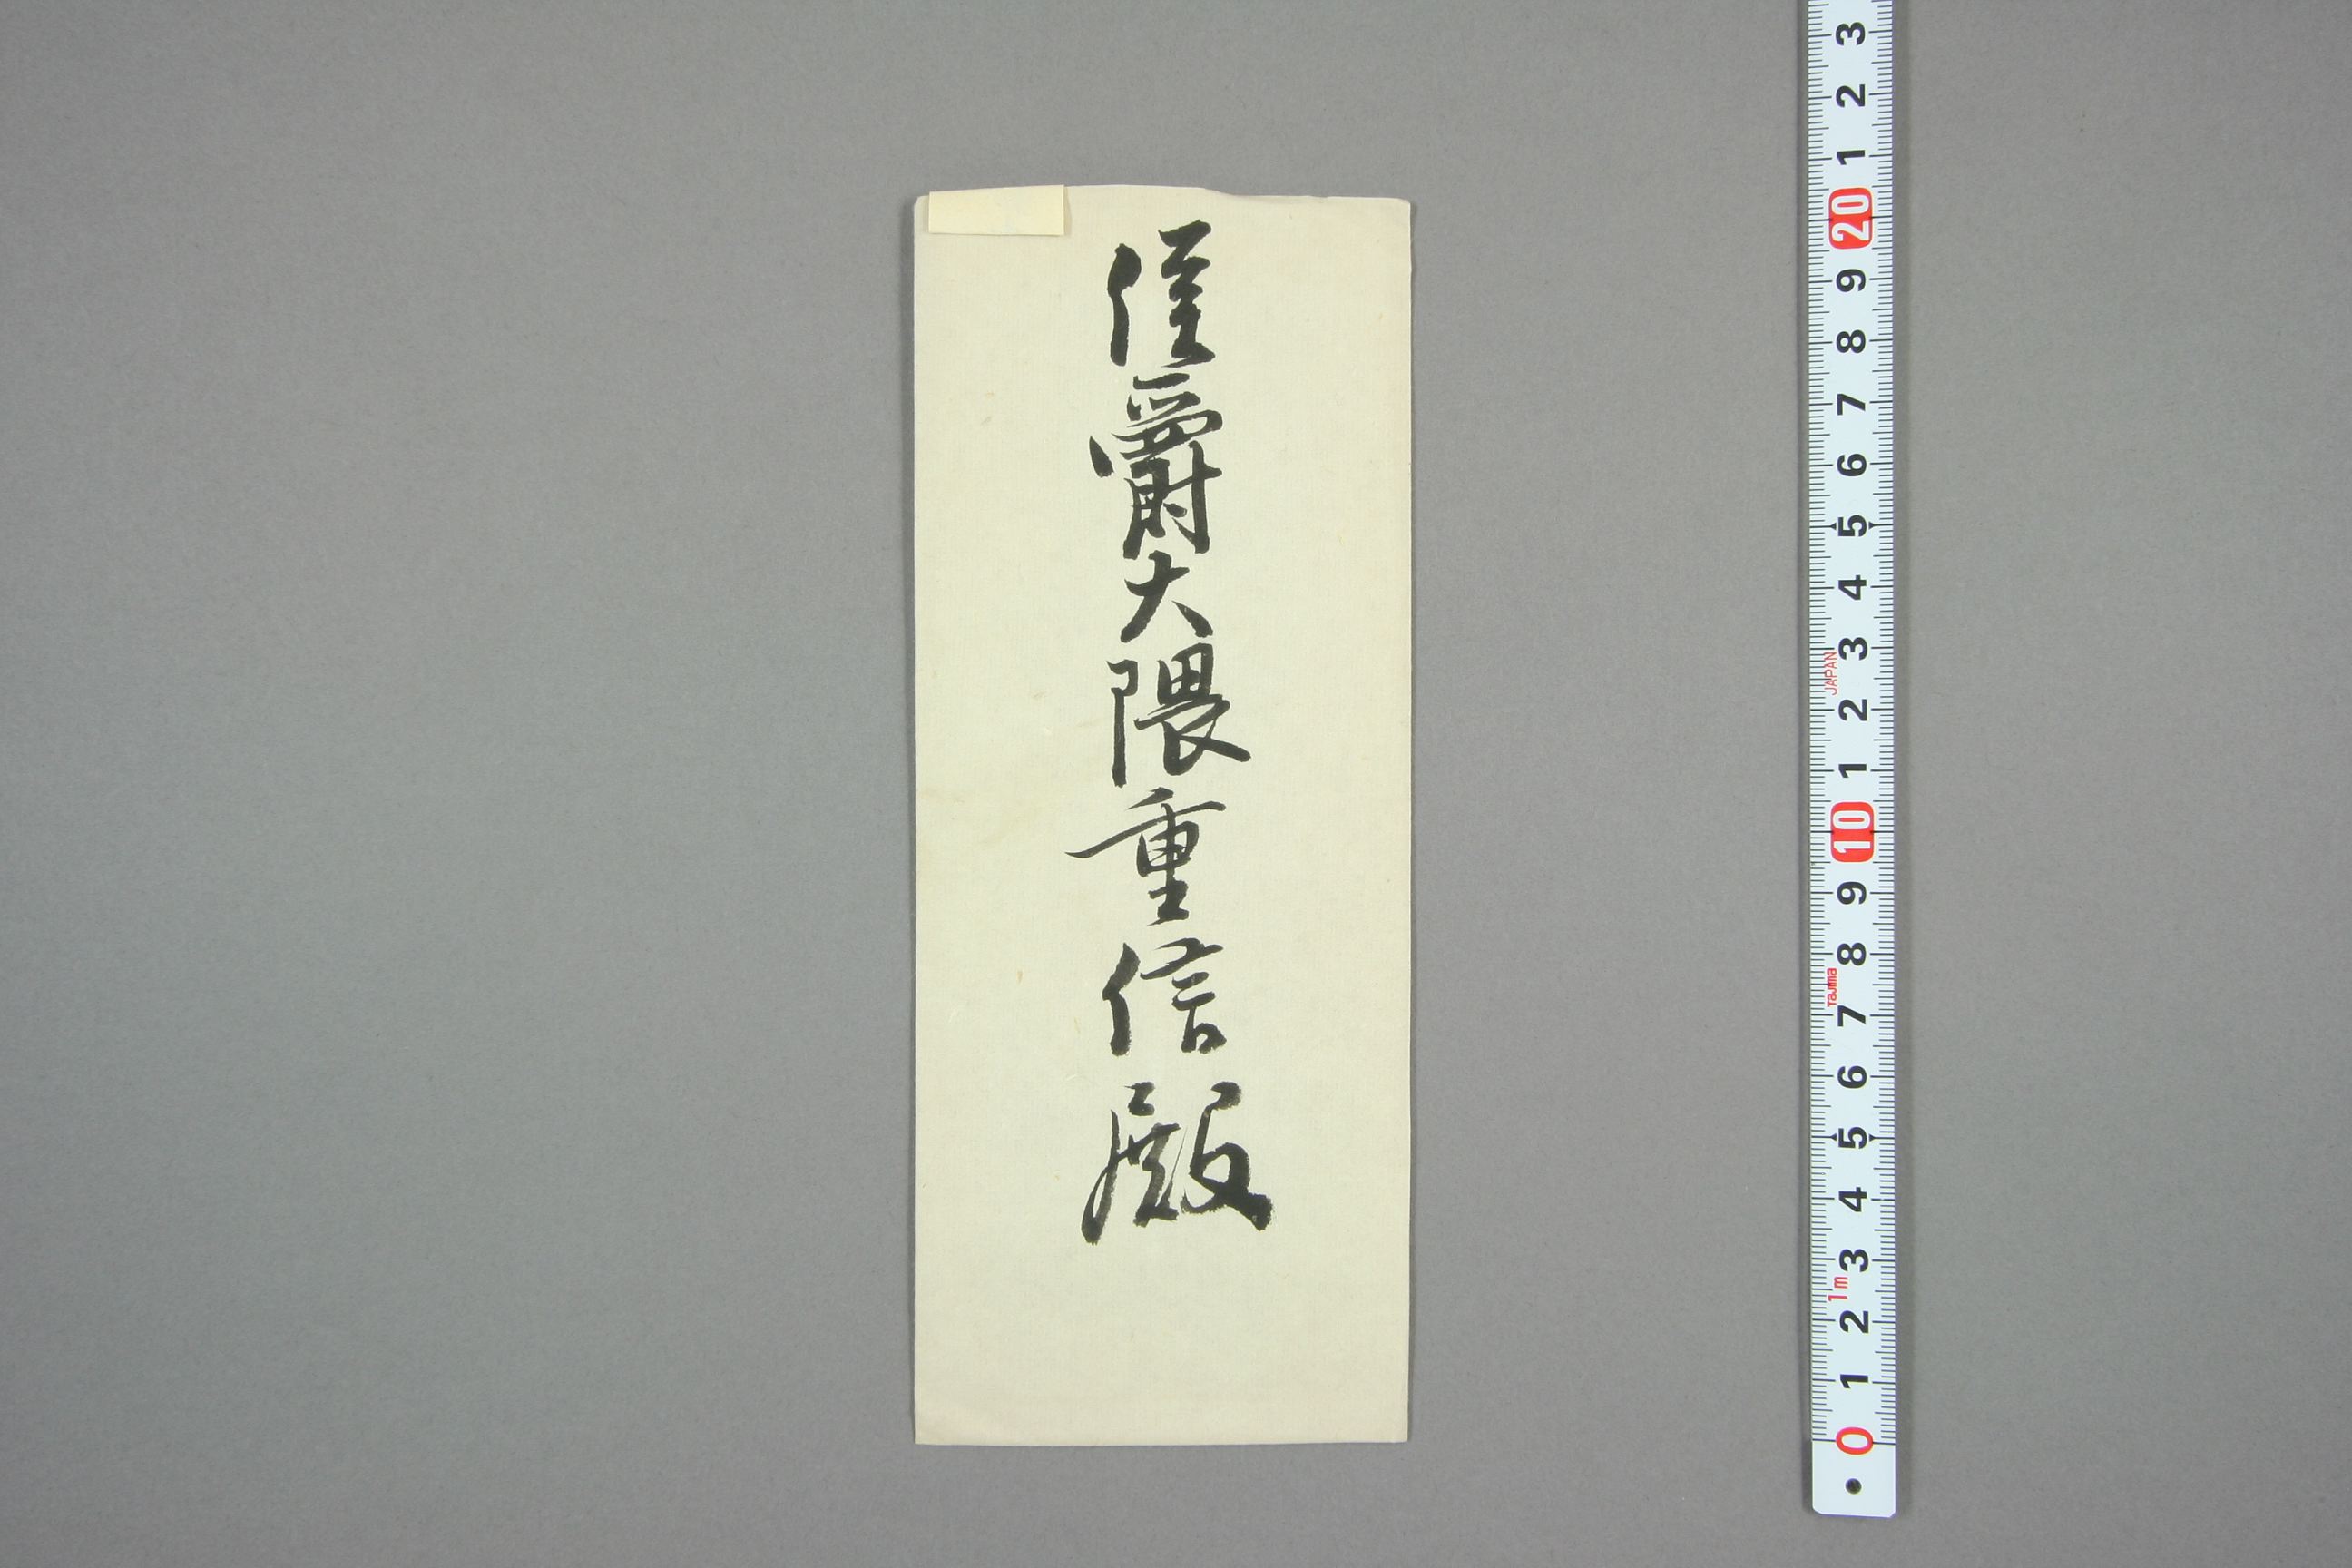 侯爵大隈重信殿
0 1 2 3 4 5 6 7 8 9 10 1 2 3 4 5 6 7 8 9 20 1 2 3
1m Tajima JAPAN